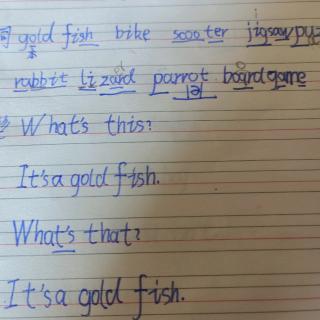 词 gold fish bike scooter jigsaw puz
rabbit lizard parrot board game
What's this?
It's a gold fish.
What's that?
It's a gold fish.